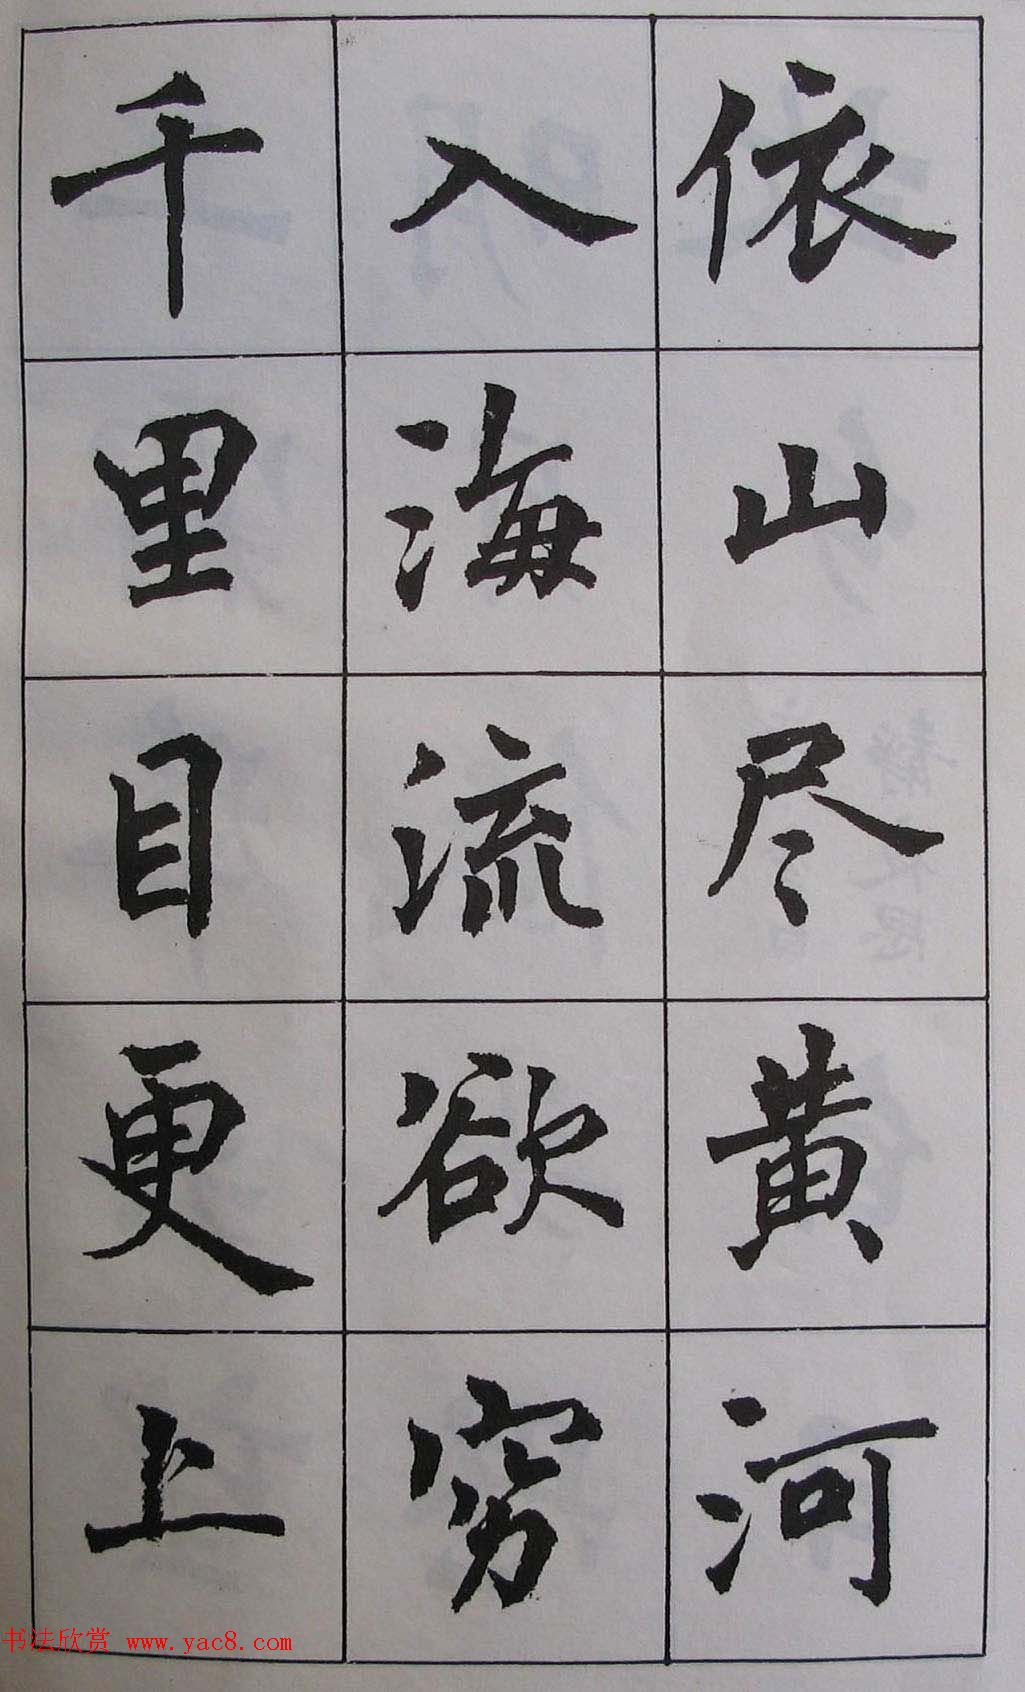 依山尽黄河
入海流欲穷
千里目更上
书法欣赏 www.yac8.com